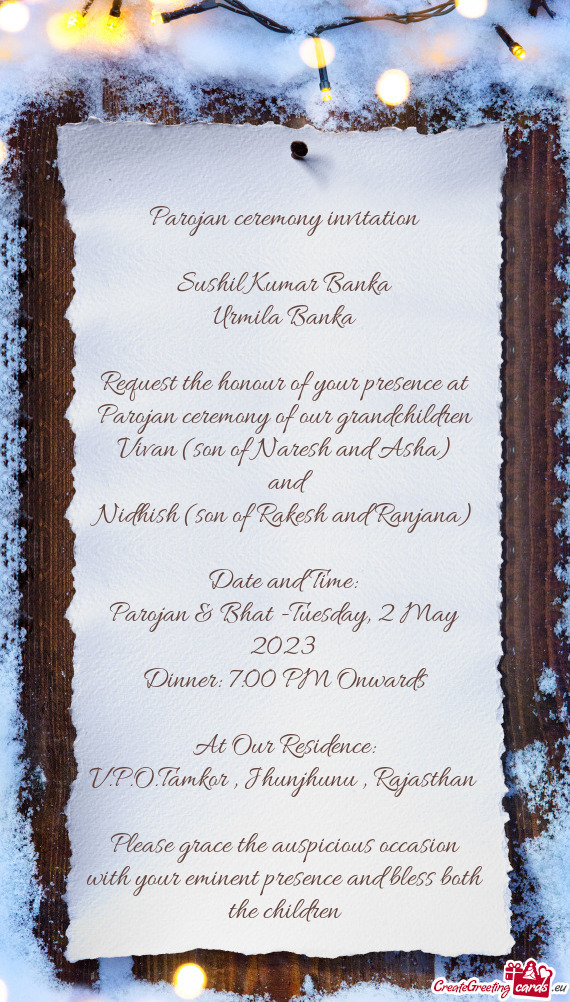 Parojan ceremony invitation
Sushil Kumar Banka
Urmila Banka
Request the honour of your presence at
Parojan ceremony of our grandchildren
Vivan ( son of Naresh and Asha)
and
Nidhish ( son of Rakesh and Ranjana)
Date and Time:
Parojan & Bhat -Tuesday, 2 May
2023
Dinner: 7:00 PM Onwards
At Our Residence:
V.P.O.Tamkor , Jhunjhunu , Rajasthan
Please grace the auspicious occasion
with your eminent presence and bless both
the children
CreateGreetingcards.eu